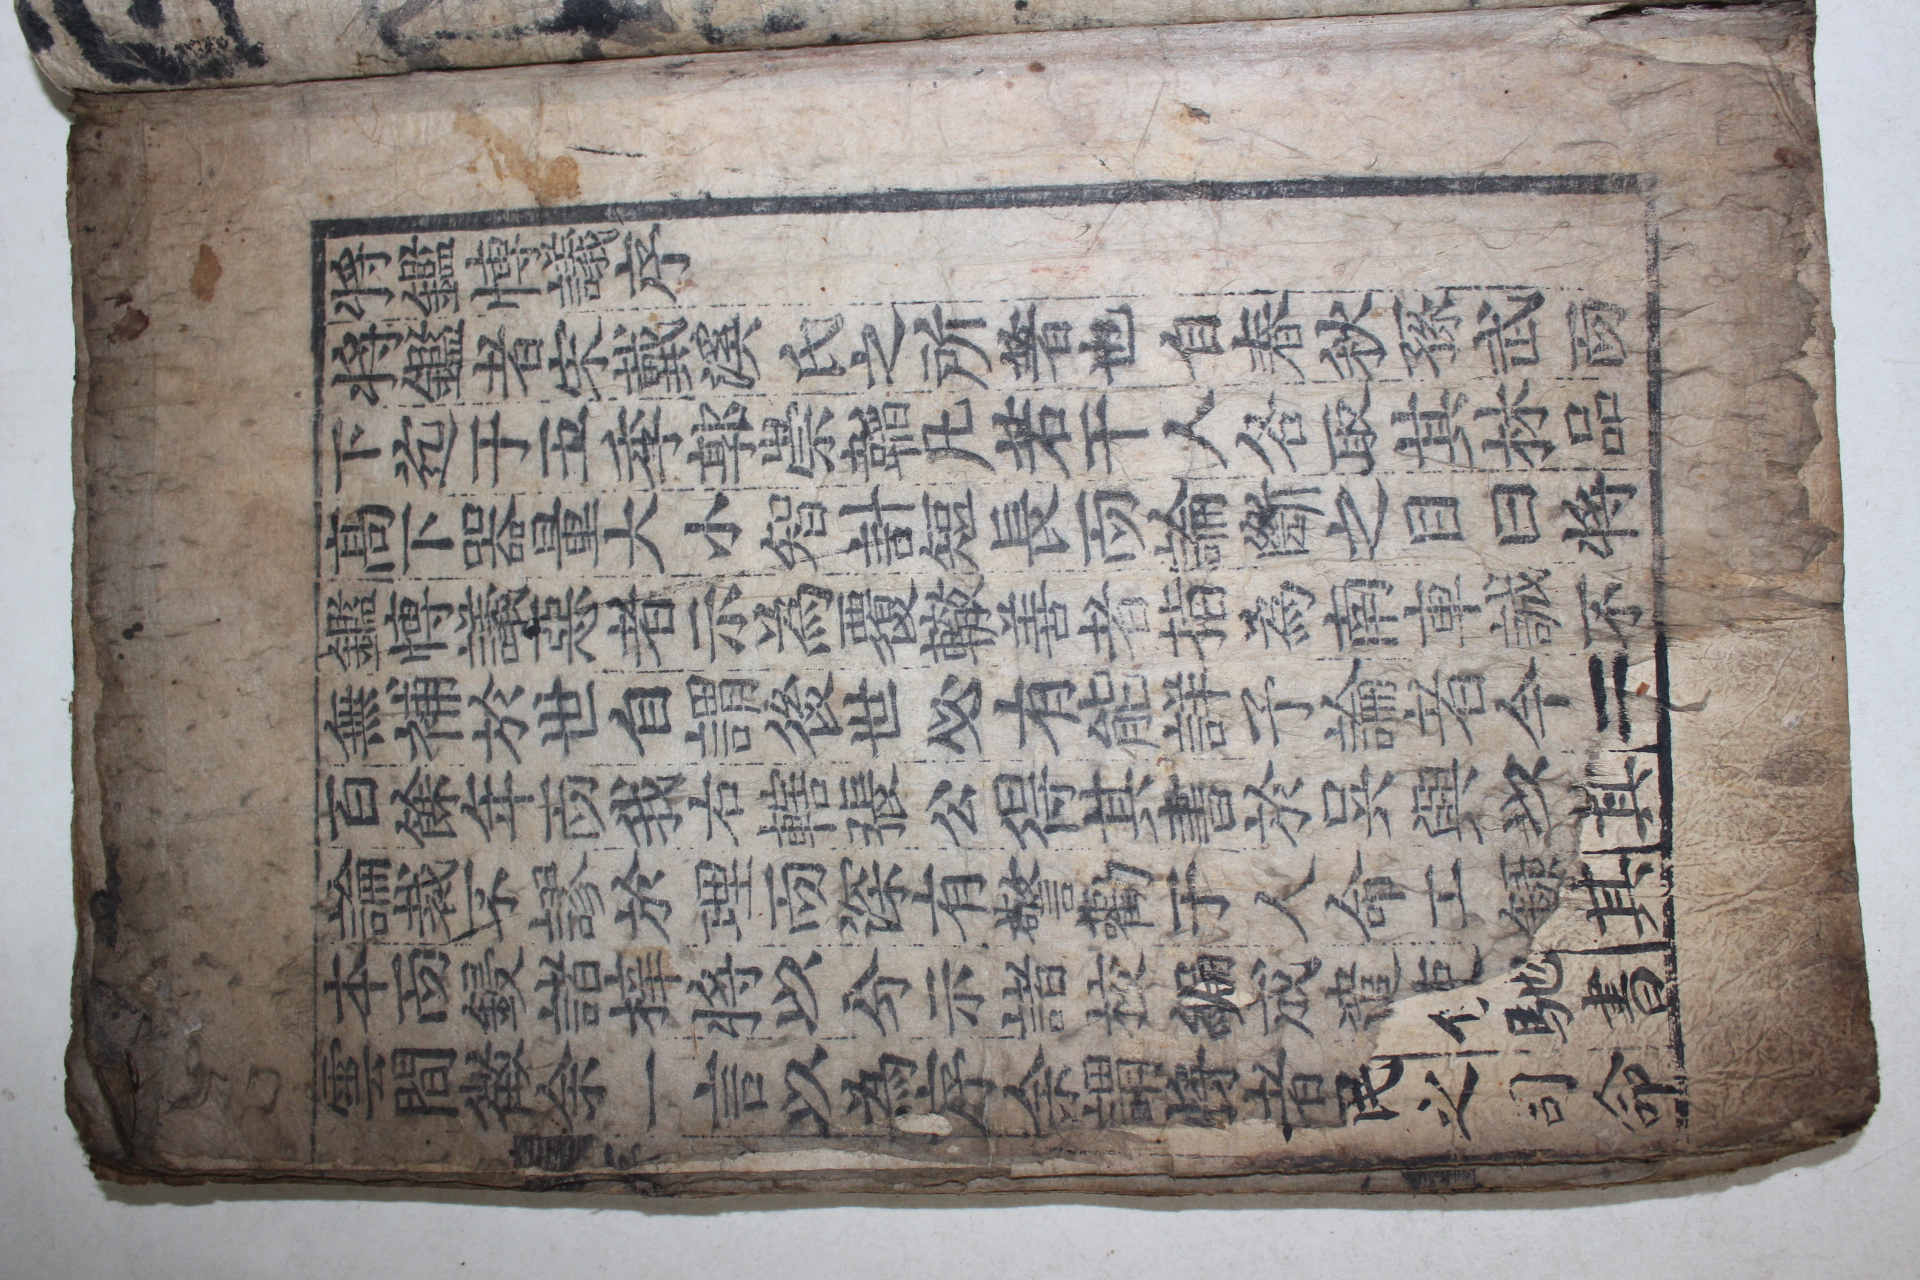 將鑑愽議序
將鑑者宋戴溪氏之所著也自春秋孫武而
下迄于五季郭崇韜凡若干人各取其材品
高下器量大小智計短長而論斷之目曰將
鑑愽議惡者示為覆轍善者指為南車誠不
無補於世自謂後世必有能詳予論者今二
百餘年而我右轄張公得其書於吳興以其
論裁不謬於理而深有警勸于人命工録其
本而鋟諸梓將以分示諸校編成遣使馳書
雲間徵余一言以為序余謂將者民之司命